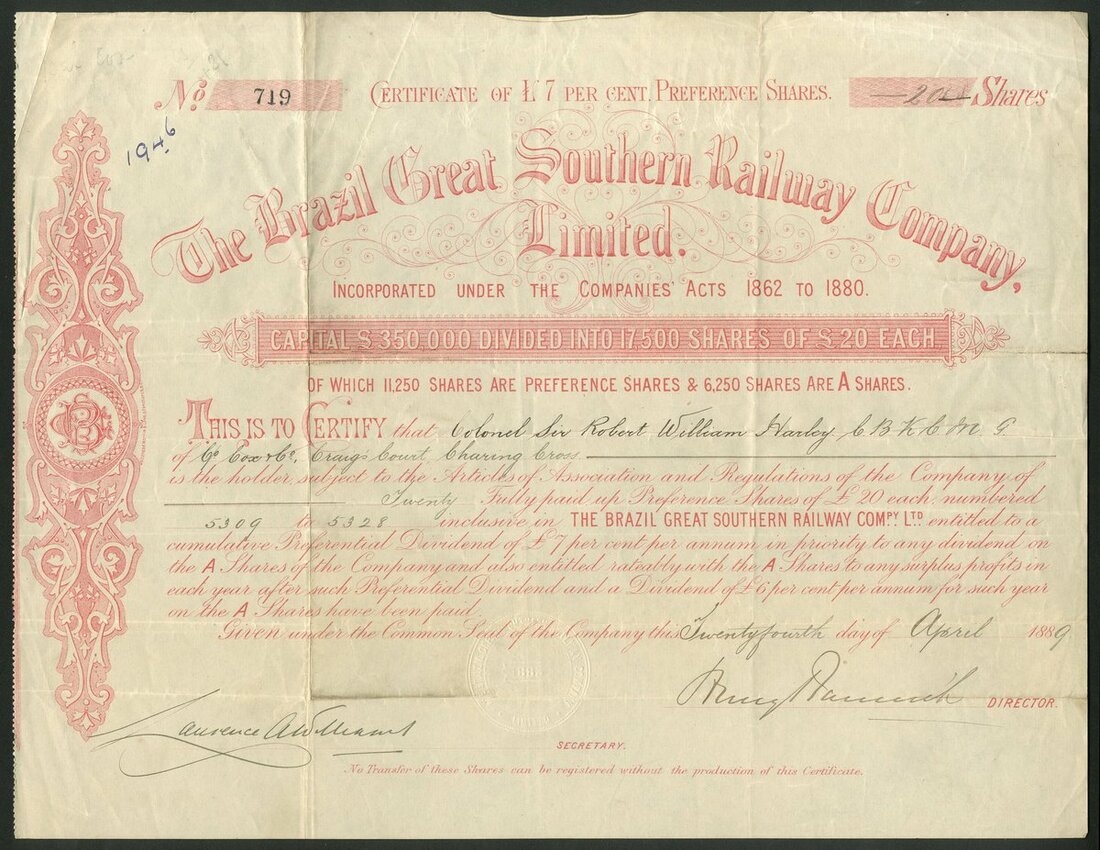 No 719 CERTIFICATE OF £7 PER CENT. PREFERENCE SHARES. —20— Shares
1946
The Brazil Great Southern Railway Company,
Limited.
INCORPORATED UNDER THE COMPANIES' ACTS 1862 TO 1880.
CAPITAL £350,000 DIVIDED INTO 17,500 SHARES OF £20 EACH
OF WHICH 11,250 SHARES ARE PREFERENCE SHARES & 6,250 SHARES ARE A SHARES.
THIS IS TO CERTIFY that Colonel Sir Robert William Harley C B K C M G
of C/o Cox & Co, Craigs Court Charing Cross
is the holder, subject to the Articles of Association and Regulations of the Company of
Twenty Fully paid up Preference Shares of £20 each, numbered
5309 to 5328 inclusive in THE BRAZIL GREAT SOUTHERN RAILWAY COMPY LTD entitled to a
cumulative Preferential Dividend of £7 per cent per annum in priority to any dividend on
the A Shares of the Company and also entitled rateably with the A Shares to any surplus profits in
each year after such Preferential Dividend and a Dividend of £6 per cent per annum for such year
on the A Shares have been paid.
Given under the Common Seal of the Company this Twentyfourth day of April 1889
DIRECTOR.
Laurence A Williams
SECRETARY.
No Transfer of these Shares can be registered without the production of this Certificate.